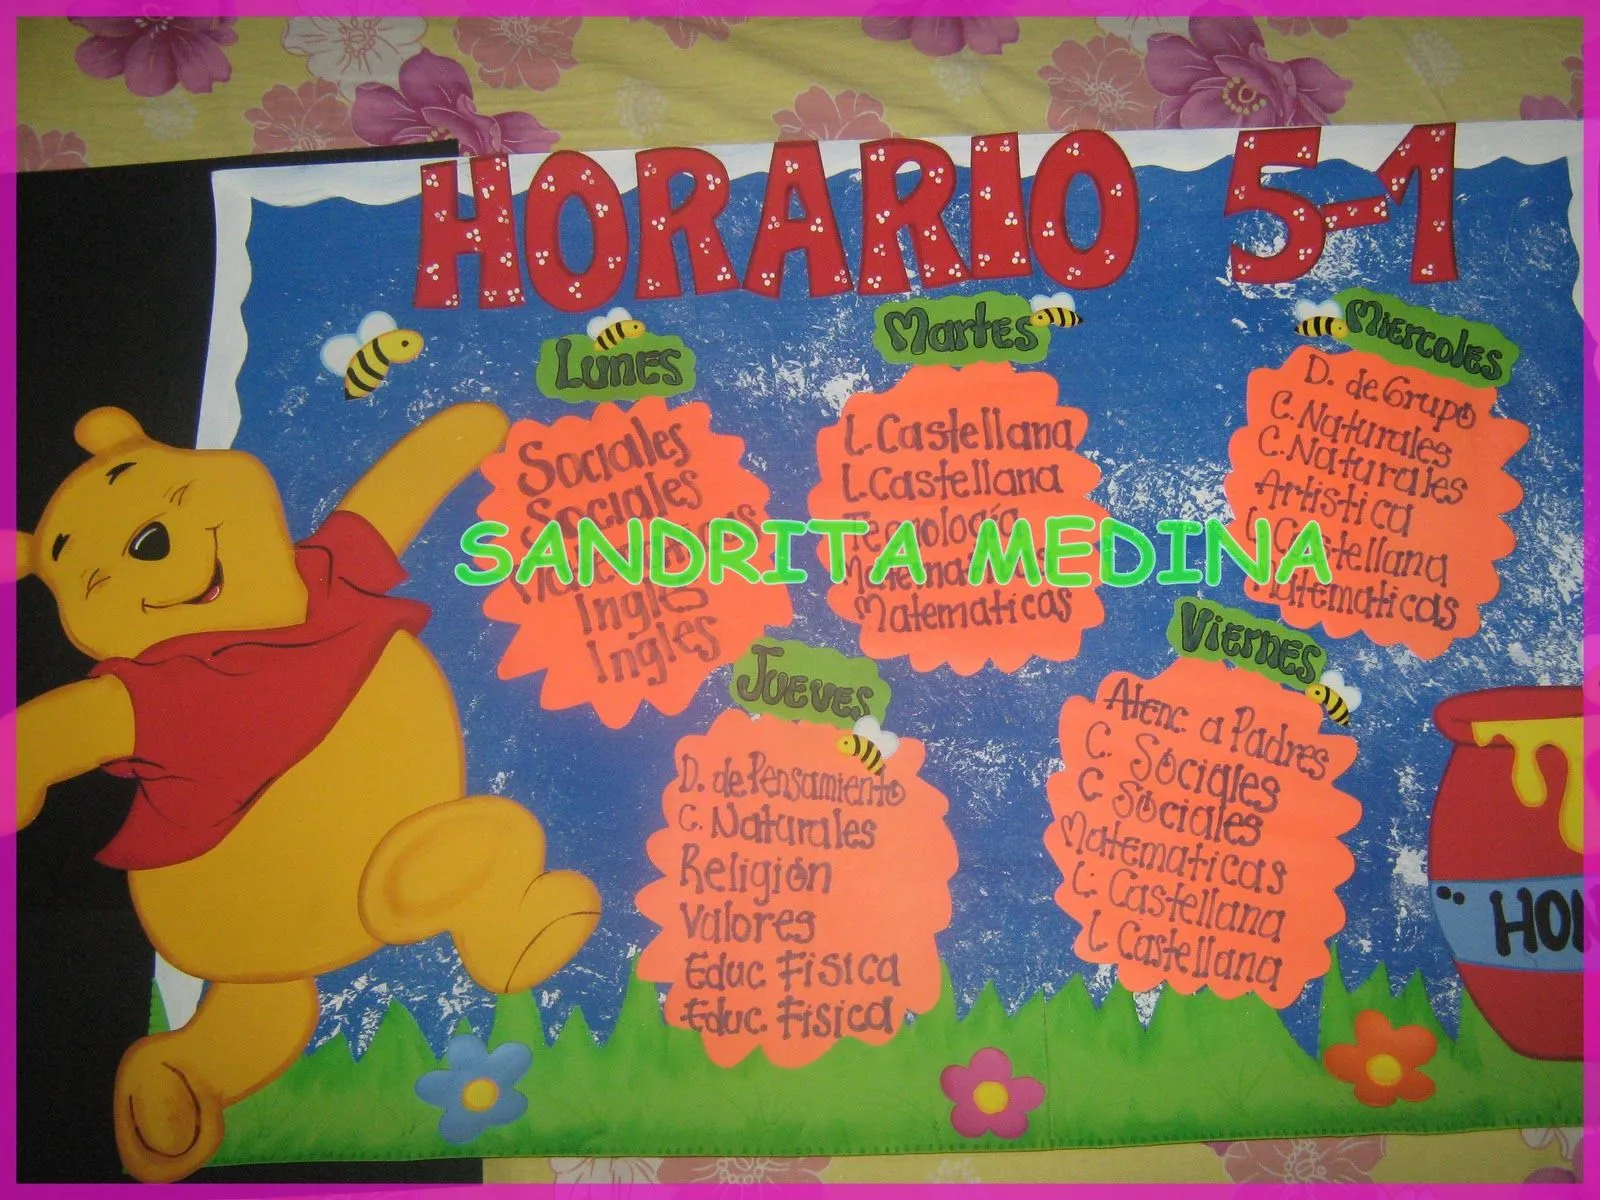 HORARIO 5-1
Lunes
Sociales
Sociales
Matematicas
Ingles
Ingles
Martes
L. Castellana
L. Castellana
Tecnología
Matematicas
Matematicas
Miercoles
D. de Grupo
C. Naturales
C. Naturales
Artistica
L. Castellana
Matematicas
Jueves
D. de Pensamiento
C. Naturales
Religión
Valores
Educ Fisica
Educ. Fisica
Viernes
Atenc. a Padres
C. Sociales
C Sociales
Matematicas
L. Castellana
L. Castellana
SANDRITA MEDINA